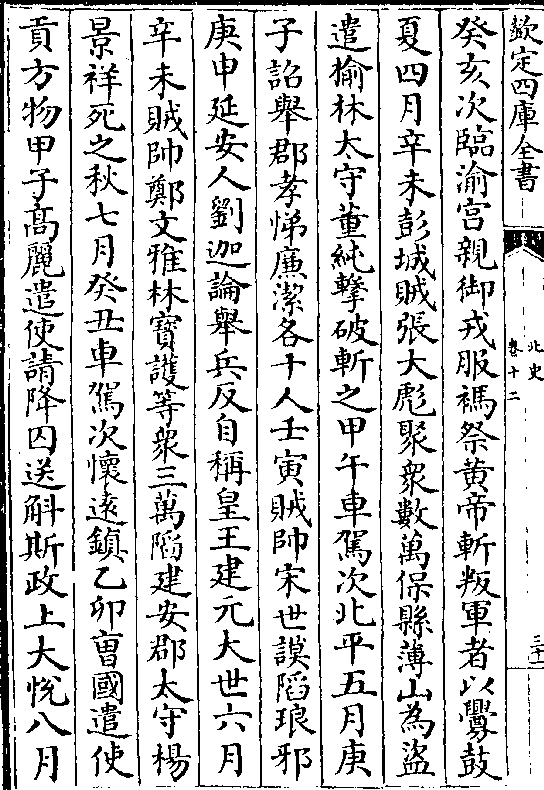 欽定四庫全書
北史
卷十二
三十一
癸亥次臨渝宮親御戎服禡祭黄帝斬叛軍者以釁鼓
夏四月辛未彭城賊張大彪聚衆數萬保縣薄山為盜
遣榆林太守董純擊破斬之甲午車駕次北平五月庚
子詔舉郡孝悌廉潔各十人壬寅賊帥宋世謨陷琅邪
庚申延安人劉迦論舉兵反自稱皇王建元大世六月
辛未賊帥鄭文雅林寶護等衆三萬陷建安郡太守楊
景祥死之秋七月癸丑車駕次懷逺鎮乙卯曺國遣使
貢方物甲子髙麗遣使請降囚送斛斯政上大悅八月